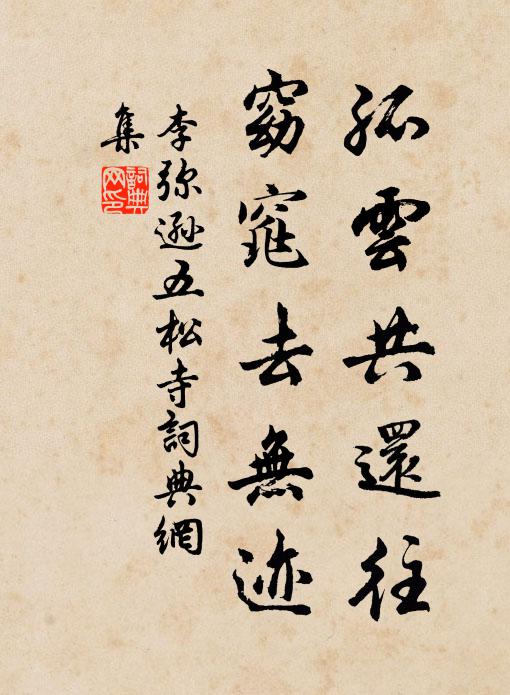 孤雲共還往
窈窕去無迹
李弥遜五松寺詞典網
集
詞典網印